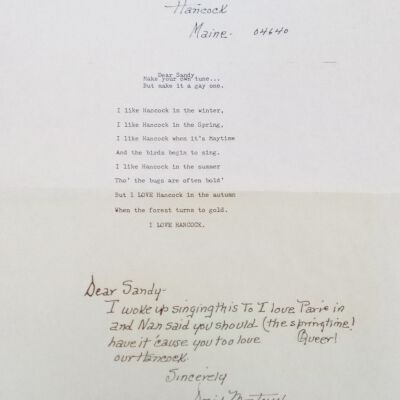 Hancock
Maine. 04640
Dear Sandy
Make your own tune...
But make it a gay one.
I like Hancock in the winter,
I like Hancock in the Spring,
I like Hancock when it's Maytime
And the birds begin to sing.
I like Hancock in the summer
Tho' the bugs are often bold'
But I LOVE Hancock in the autumn
When the forest turns to gold.
I LOVE HANCOCK.
Dear Sandy-
I woke up singing this To I love Paris in
and Nan said you should (the springtime!
have it 'cause you too love Queer!
our Hancock.
Sincerely